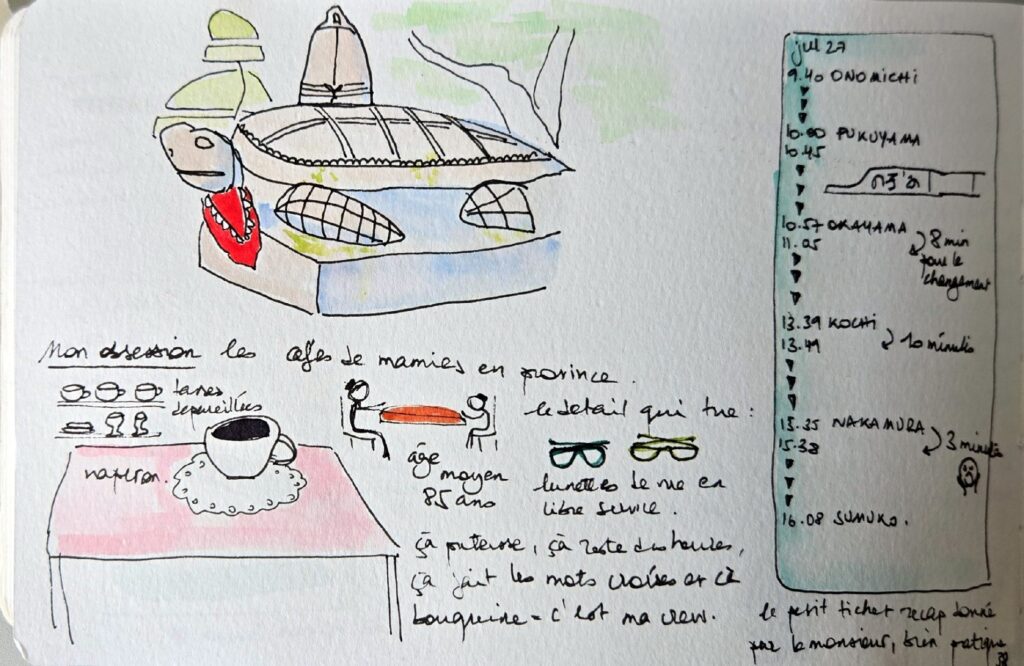 Mon obsession les cafés de mamies en province.
tasses
depareillées
naperon.
âge
moyen
85 ans
le detail qui tue :
lunettes de vue en
libre service.
çà, çà reste des heures,
çà fait les mots croisés et çà
bouquine = c'est ma crew.
jul 27
9.40 ONOMICHI
10.00 FUKUYAMA
10.45
10.57 OKAYAMA
11.05
8 min
pour le
changement
13.39 KOCHI
13.49
10 minutes
15.35 NAKAMURA
15.38
3 minutes
16.08 SUMUKO.
le petit ticket recap donné
par le monsieur, bien pratique